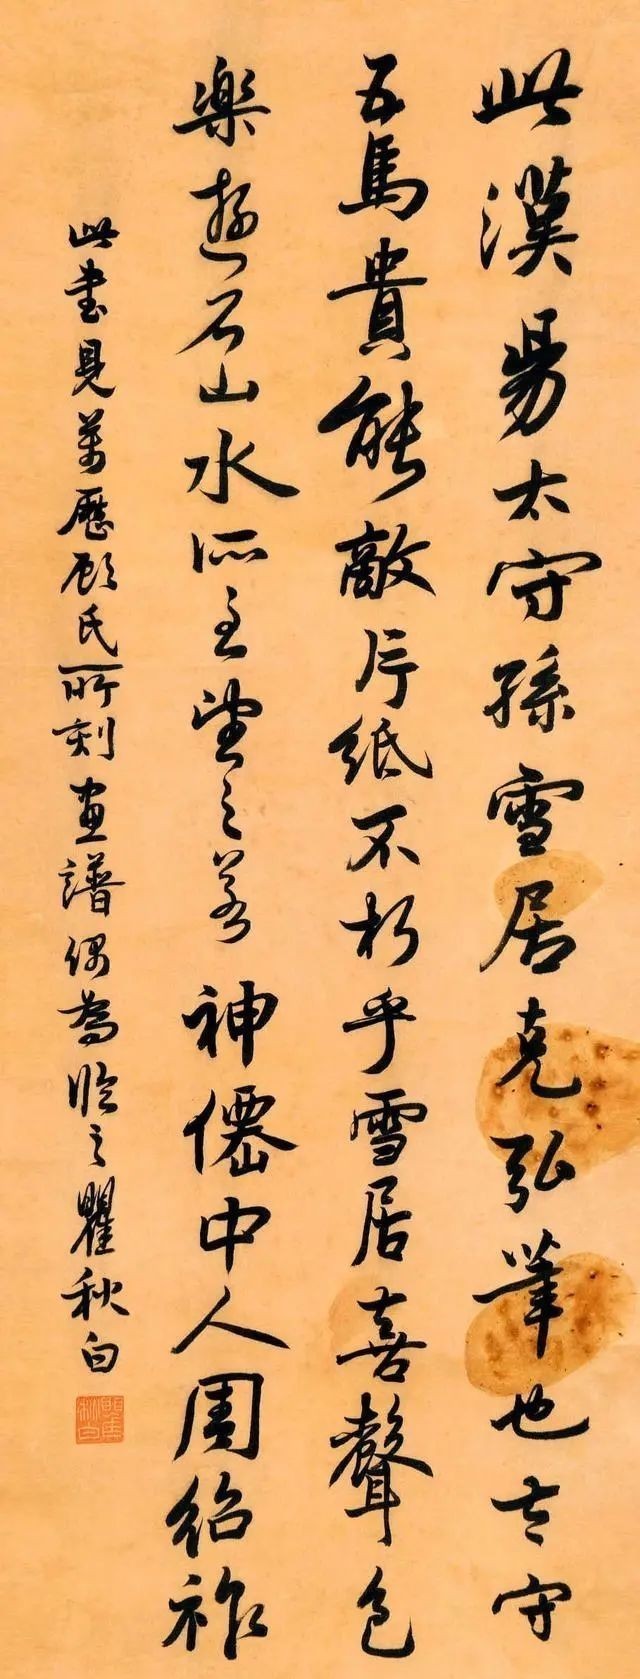 此漢昜太守孫雪居克弘筆也太守
五馬貴能敵片紙不朽乎雪居喜聲色
樂遊名山水所至望之若神僊中人周紹祚
此書見萬歷顧氏所刻畫譜偶為臨之瞿秋白
瞿秋白